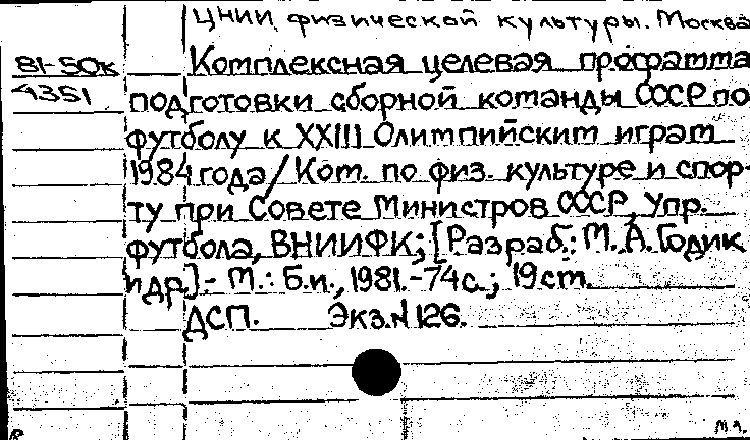 ЦНИИ физической культуры. Москва
81-50к
4351
Комплексная целевая программа
подготовки сборной команды СССР по
футболу к XXIII Олимпийским играм
1984 года / Ком. по физ. культуре и спор-
ту при Совете Министров СССР, Упр.
футбола, ВНИИФК; [Разраб.: М. А. Годик
и др.] - М.: Б.и., 1981. - 74с.; 19см.
ДСП. Экз.N 126.